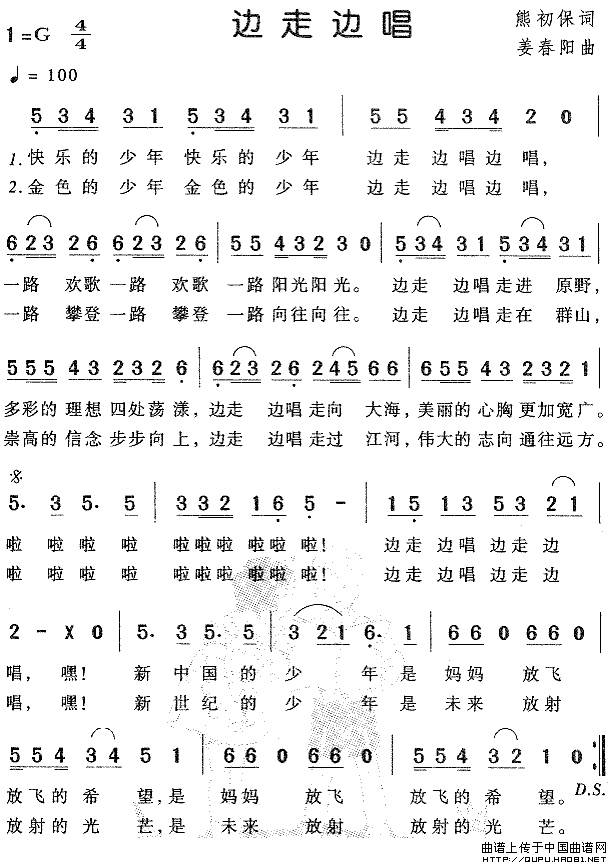 边走边唱
1=G 4/4
熊初保词
♩= 100
姜春阳曲
5 34 31 5 34 31 | 55 434 2 0 |
1.快乐的 少年 快乐的 少年 边走 边唱边 唱,
2.金色的 少年 金色的 少年 边走 边唱边 唱,
623 26 623 26 | 55 4323 30 | 534 31 534 31 |
一路 欢歌一路 欢歌 一路 阳光阳光。 边走 边唱走进 原野,
一路 攀登一路 攀登 一路 向往向往。 边走 边唱走在 群山,
555 43 232 6 | 623 26 245 66 | 655 43 2321 |
多彩的 理想 四处荡 漾, 边走 边唱 走向 大海, 美丽的 心胸 更加宽 广。
崇高的 信念 步步向 上, 边走 边唱 走过 江河, 伟大的 志向 通往远 方。
5· 3 5· 5 | 332 116 5 - | 15 13 53 21 |
啦 啦 啦 啦 啦啦啦 啦啦 啦! 边走 边唱 边走 边
啦 啦 啦 啦 啦啦啦 啦啦 啦! 边走 边唱 边走 边
2 - X 0 | 5· 35· 5 | 3 21 6· 1 | 660 660 |
唱, 嘿! 新 中国 的 少 年 是 妈妈 放飞
唱, 嘿! 新 世纪 的 少 年 是 未来 放射
554 34 5 1 | 660 660 | 554 32 1 0 :‖
放飞的 希 望,是 妈妈 放飞 放飞的 希 望。 D.S.
放射的 光 芒,是 未来 放射 放射的 光 芒。
曲谱上传于中国曲谱网
HTTP://QUPU.HAO81.NET